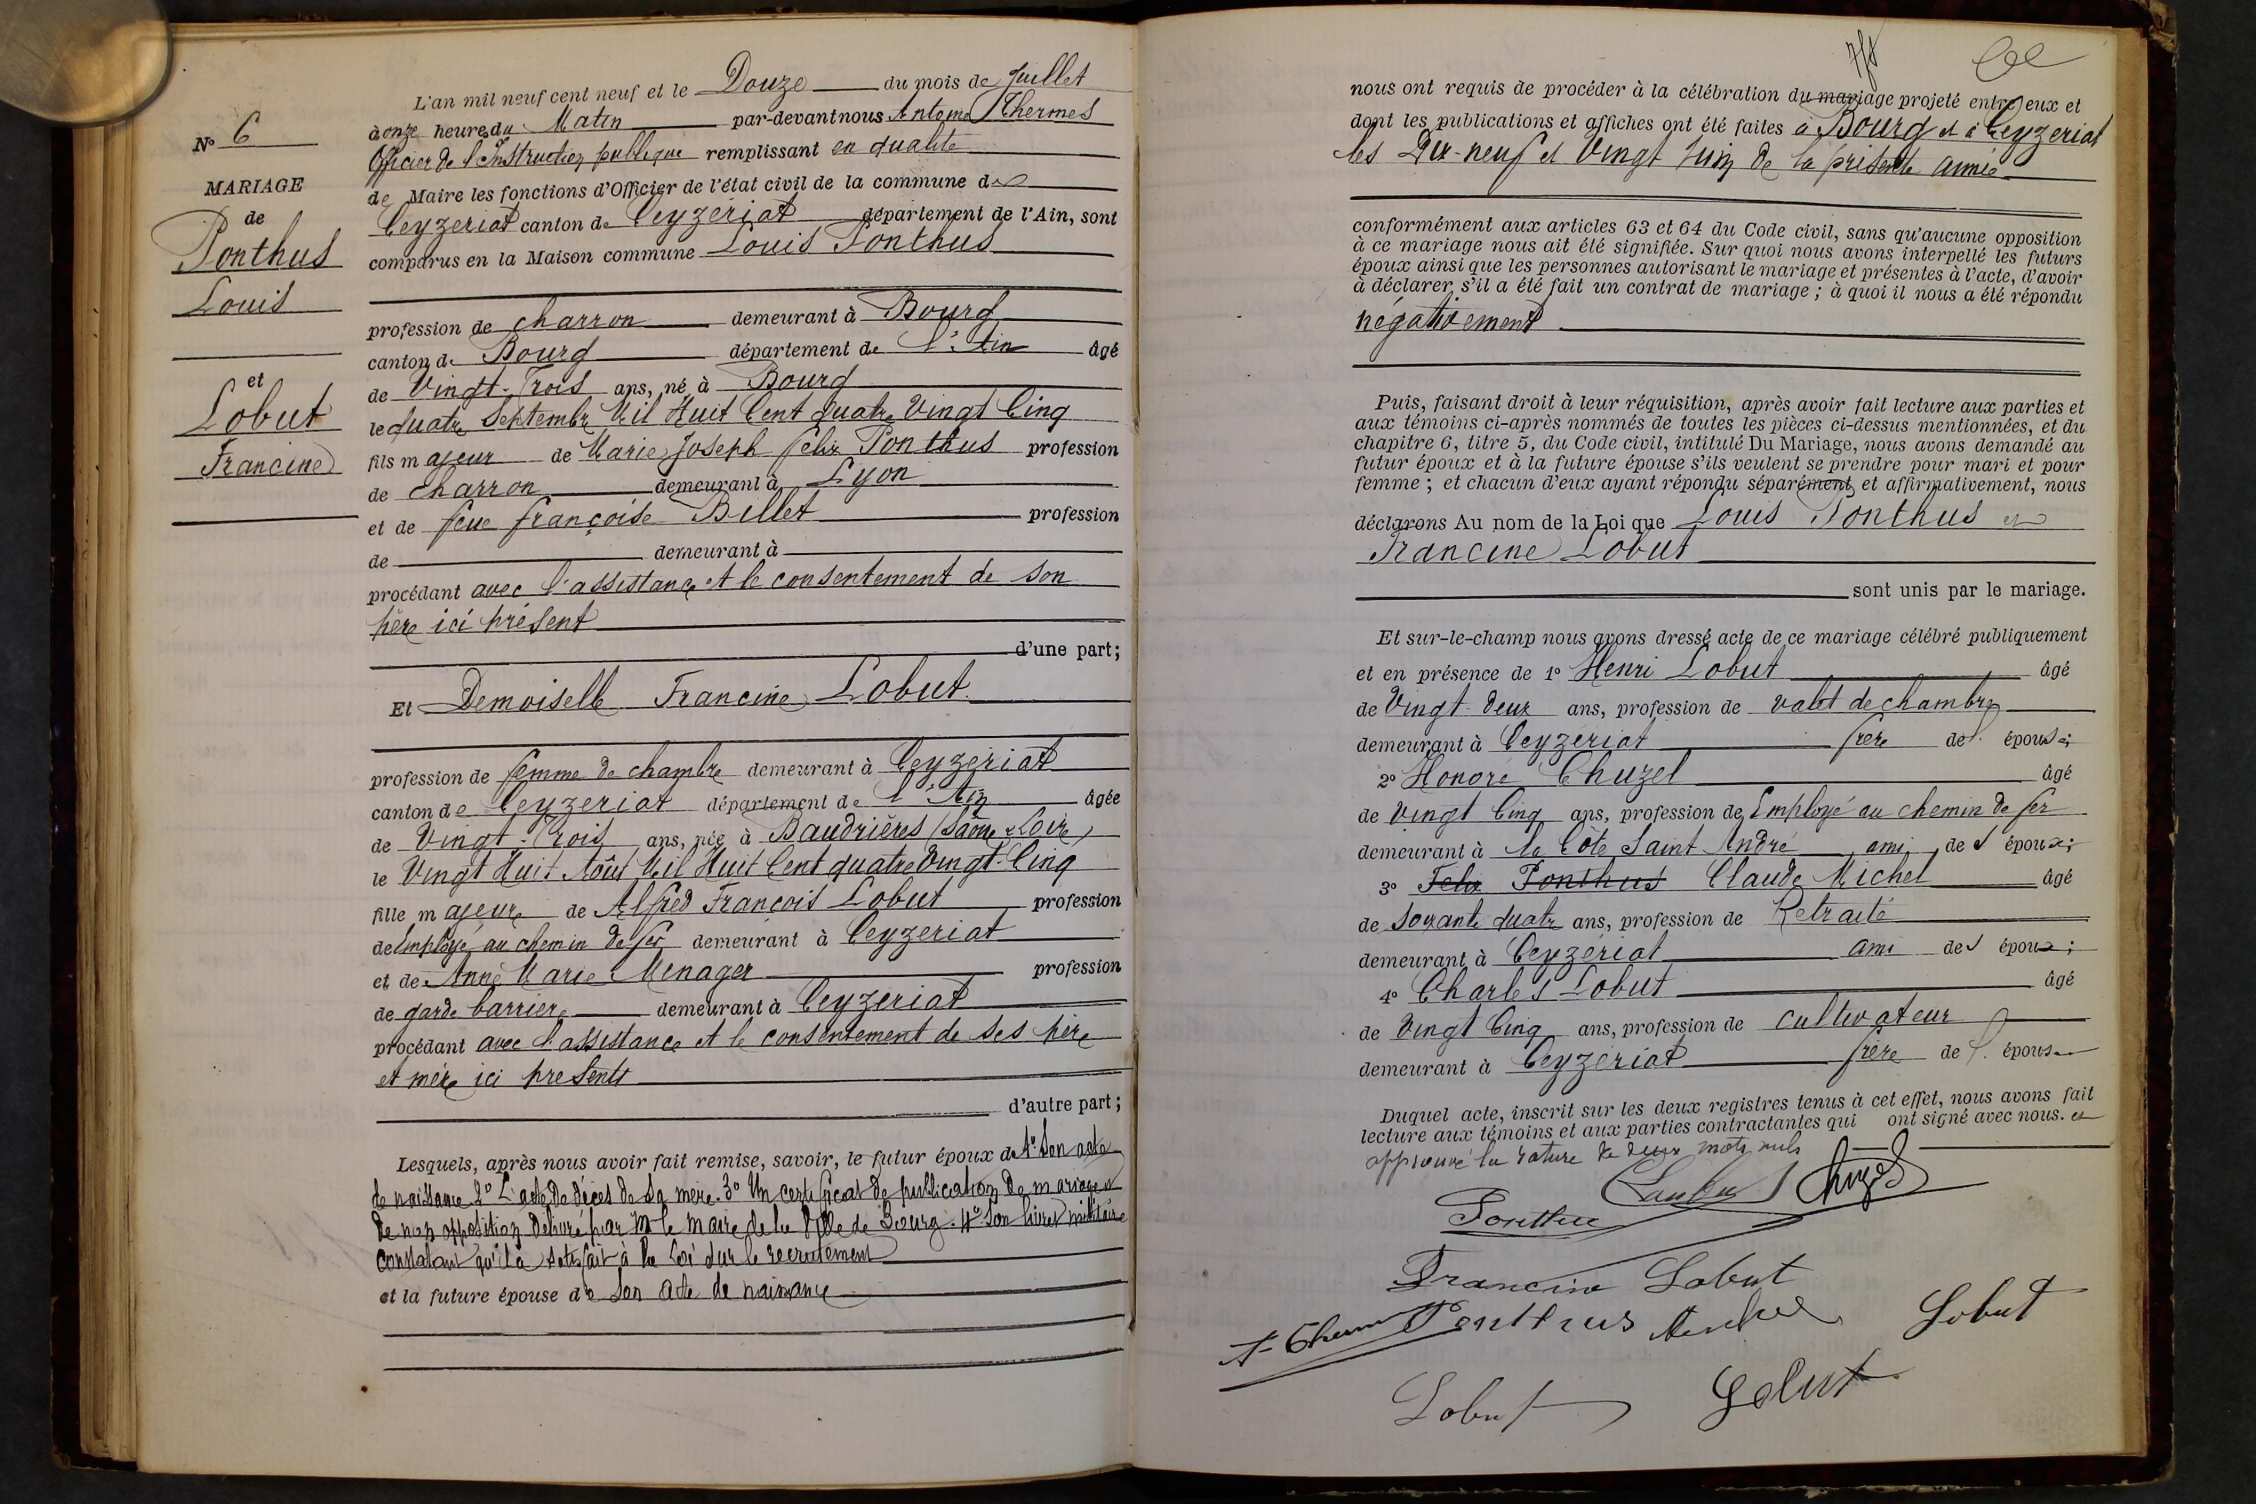 L'an mil neuf cent neuf et le Douze du mois de Juillet
à onze heures du Matin par-devant nous Antoine Thermes
Officier de l'Instruction publique remplissant en qualité
de Maire les fonctions d'Officier de l'état civil de la commune de
Ceyzeriat canton de Ceyzériat département de l'Ain, sont
comparus en la Maison commune Louis Ponthus
profession de charron demeurant à Bourg
canton de Bourg département de l'Ain âgé
de Vingt-Trois ans, né à Bourg
le quatre Septembre Mil Huit Cent quatre Vingt Cinq
fils majeur de Marie Joseph felix Ponthus profession
de charron demeurant à Lyon
et de feue françoise Billet profession
de demeurant à
procédant avec l'assistance et le consentement de son
père ici présent
d'une part;
Et Demoiselle Francine Lobut
profession de femme de chambre demeurant à Ceyzériat
canton de Ceyzeriat département de l'Ain âgée
de Vingt-Trois ans, née à Baudrières (Saône & Loire)
le Vingt Huit Août Mil Huit Cent quatre Vingt-Cinq
fille majeure de Alfred François Lobut profession
de Employé au chemin de fer demeurant à Ceyzeriat
et de Anne Marie Menager profession
de garde barrière demeurant à Ceyzeriat
procédant avec l'assistance et le consentement de ses père
et mère ici présents
d'autre part;
Lesquels, après nous avoir fait remise, savoir, le futur époux de 1º Son acte
de naissance 2º L'acte de décès de sa mère. 3º Un certificat de publication de mariage et
de non opposition délivré par Mr le maire de la Ville de Bourg. 4º Son livret militaire
constatant qu'il a satisfait à la Loi sur le recrutement
et la future épouse de Son acte de naissance
Nº 6
MARIAGE
de
Ponthus
Louis
et
Lobut
Francine
nous ont requis de procéder à la célébration du mariage projeté entre eux et
dont les publications et affiches ont été faites à Bourg et à Ceyzeriat
les Dix-neuf et Vingt Juin de la présente année
conformément aux articles 63 et 64 du Code civil, sans qu'aucune opposition
à ce mariage nous ait été signifiée. Sur quoi nous avons interpellé les futurs
époux ainsi que les personnes autorisant le mariage et présentes à l'acte, d'avoir
à déclarer s'il a été fait un contrat de mariage; à quoi il nous a été répondu
négativement
Puis, faisant droit à leur réquisition, après avoir fait lecture aux parties et
aux témoins ci-après nommés de toutes les pièces ci-dessus mentionnées, et du
chapitre 6, titre 5, du Code civil, intitulé Du Mariage, nous avons demandé au
futur époux et à la future épouse s'ils veulent se prendre pour mari et pour
femme; et chacun d'eux ayant répondu séparément et affirmativement, nous
déclarons Au nom de la Loi que Louis Ponthus et
Francine Lobut
sont unis par le mariage.
Et sur-le-champ nous avons dressé acte de ce mariage célébré publiquement
et en présence de 1º Henri Lobut âgé
de Vingt-deux ans, profession de valet de chambre
demeurant à Ceyzeriat frère de l' épouse;
2º Honoré Chuzel âgé
de Vingt Cinq ans, profession de Employé au chemin de fer
demeurant à la Côte Saint André ami des époux;
3º Felix Ponthus Claude Michel âgé
de soixante quatre ans, profession de Retraité
demeurant à Ceyzériat ami des époux;
4º Charles Lobut âgé
de Vingt Cinq ans, profession de cultivateur
demeurant à Ceyzériat frère de l' épouse
Duquel acte, inscrit sur les deux registres tenus à cet effet, nous avons fait
lecture aux témoins et aux parties contractantes qui ont signé avec nous. et
approuvé la rature de deux mots nuls
Chuzel
Ponthus
Francine Lobut
Ponthus
Lobut
Lobut
Lobut